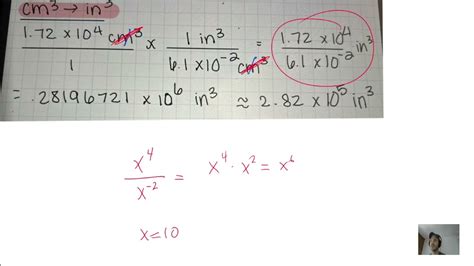 cm³ → in³
1.72 x 10⁴ cm³ / 1 x 1 in³ / 6.1 x 10⁻² cm³ = 1.72 x 10⁴ / 6.1 x 10⁻² in³
= .28196721 x 10⁶ in³ ≈ 2.82 x 10⁵ in³
x⁴ / x⁻² = x⁴ · x² = x⁶
x = 10